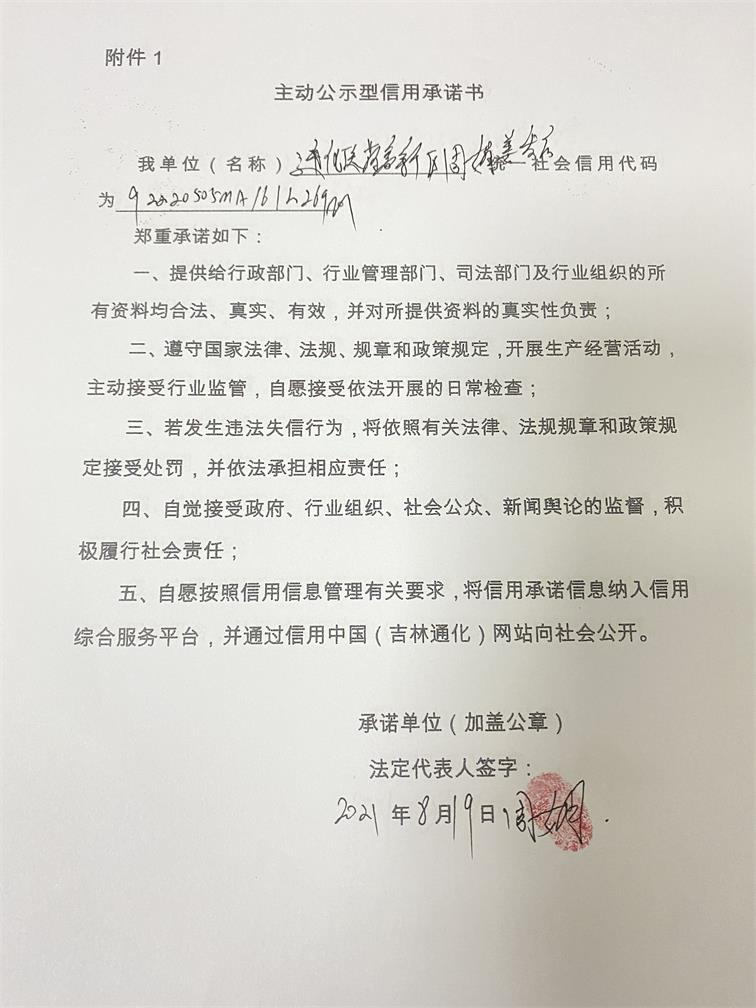 附件 1
主动公示型信用承诺书
我单位（名称）通化医 高新区周 美 统 社会信用代码
为
郑重承诺如下：
一、提供给行政部门、行业管理部门、司法部门及行业组织的所
有资料均合法、真实、有效，并对所提供资料的真实性负责；
二、遵守国家法律、法规、规章和政策规定，开展生产经营活动，
主动接受行业监管，自愿接受依法开展的日常检查；
三、若发生违法失信行为，将依照有关法律、法规规章和政策规
定接受处罚，并依法承担相应责任；
四、自觉接受政府、行业组织、社会公众、新闻舆论的监督，积
极履行社会责任；
五、自愿按照信用信息管理有关要求，将信用承诺信息纳入信用
综合服务平台，并通过信用中国（吉林通化）网站向社会公开。
承诺单位（加盖公章）
法定代表人签字：
2021 年 8 月 19 日 周